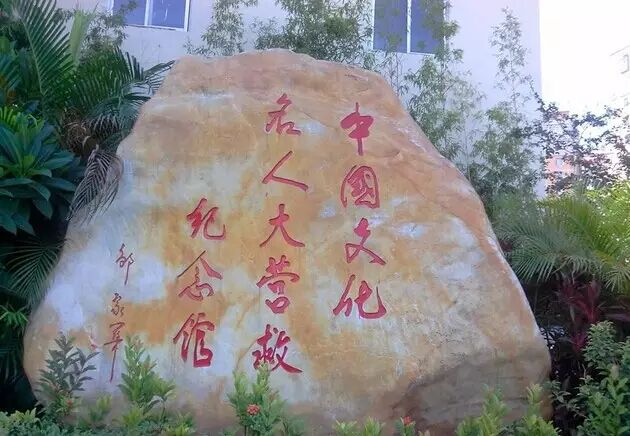 中國文化
名人大营救
纪念馆
邹家华